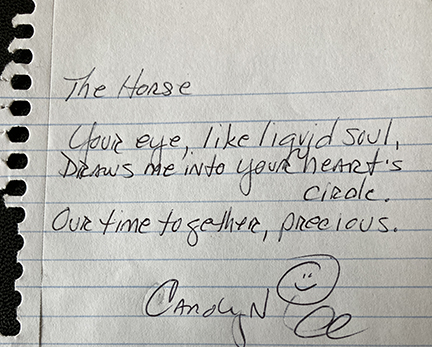 The Horse
Your eye, like liquid soul,
Draws me into your heart's
circle.
Our time together, precious.